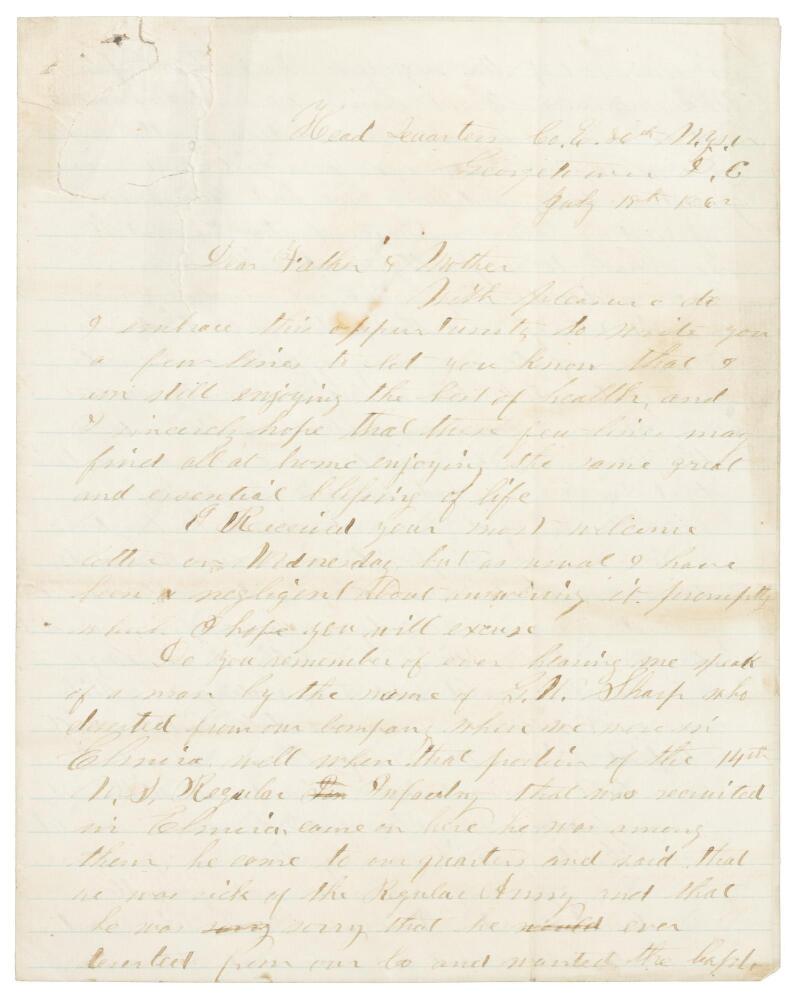 Head Quarters Co. E. 86th N.Y.S.V.
Georgetown D.C
July 18th 1862
Dear Father & Mother
With pleasure do
I embrace this oppurtunity to write you
a few lines to let you know that I
am still enjoying the best of health, and
I sincerely hope that these few lines may
find all at home enjoying the same great
and essential blessing of life
I Received your most welcome
letter on Wednesday, but as usual I have
been negligent about answering it promptly
which I hope you will excuse
Do you remember of ever hearing me speak
of a man by the name of G.W. Sharp who
deserted from our company when we were in
Elmira, well when that portion of the 14th
U.S. Regular Infantry that was recruited
in Elmira, came on here he was among
them, he come to our quarters and said that
he was sick of the Regular Army and that
he was sorry sorry that he would ever
deserted from our Co and wanted the Capt.